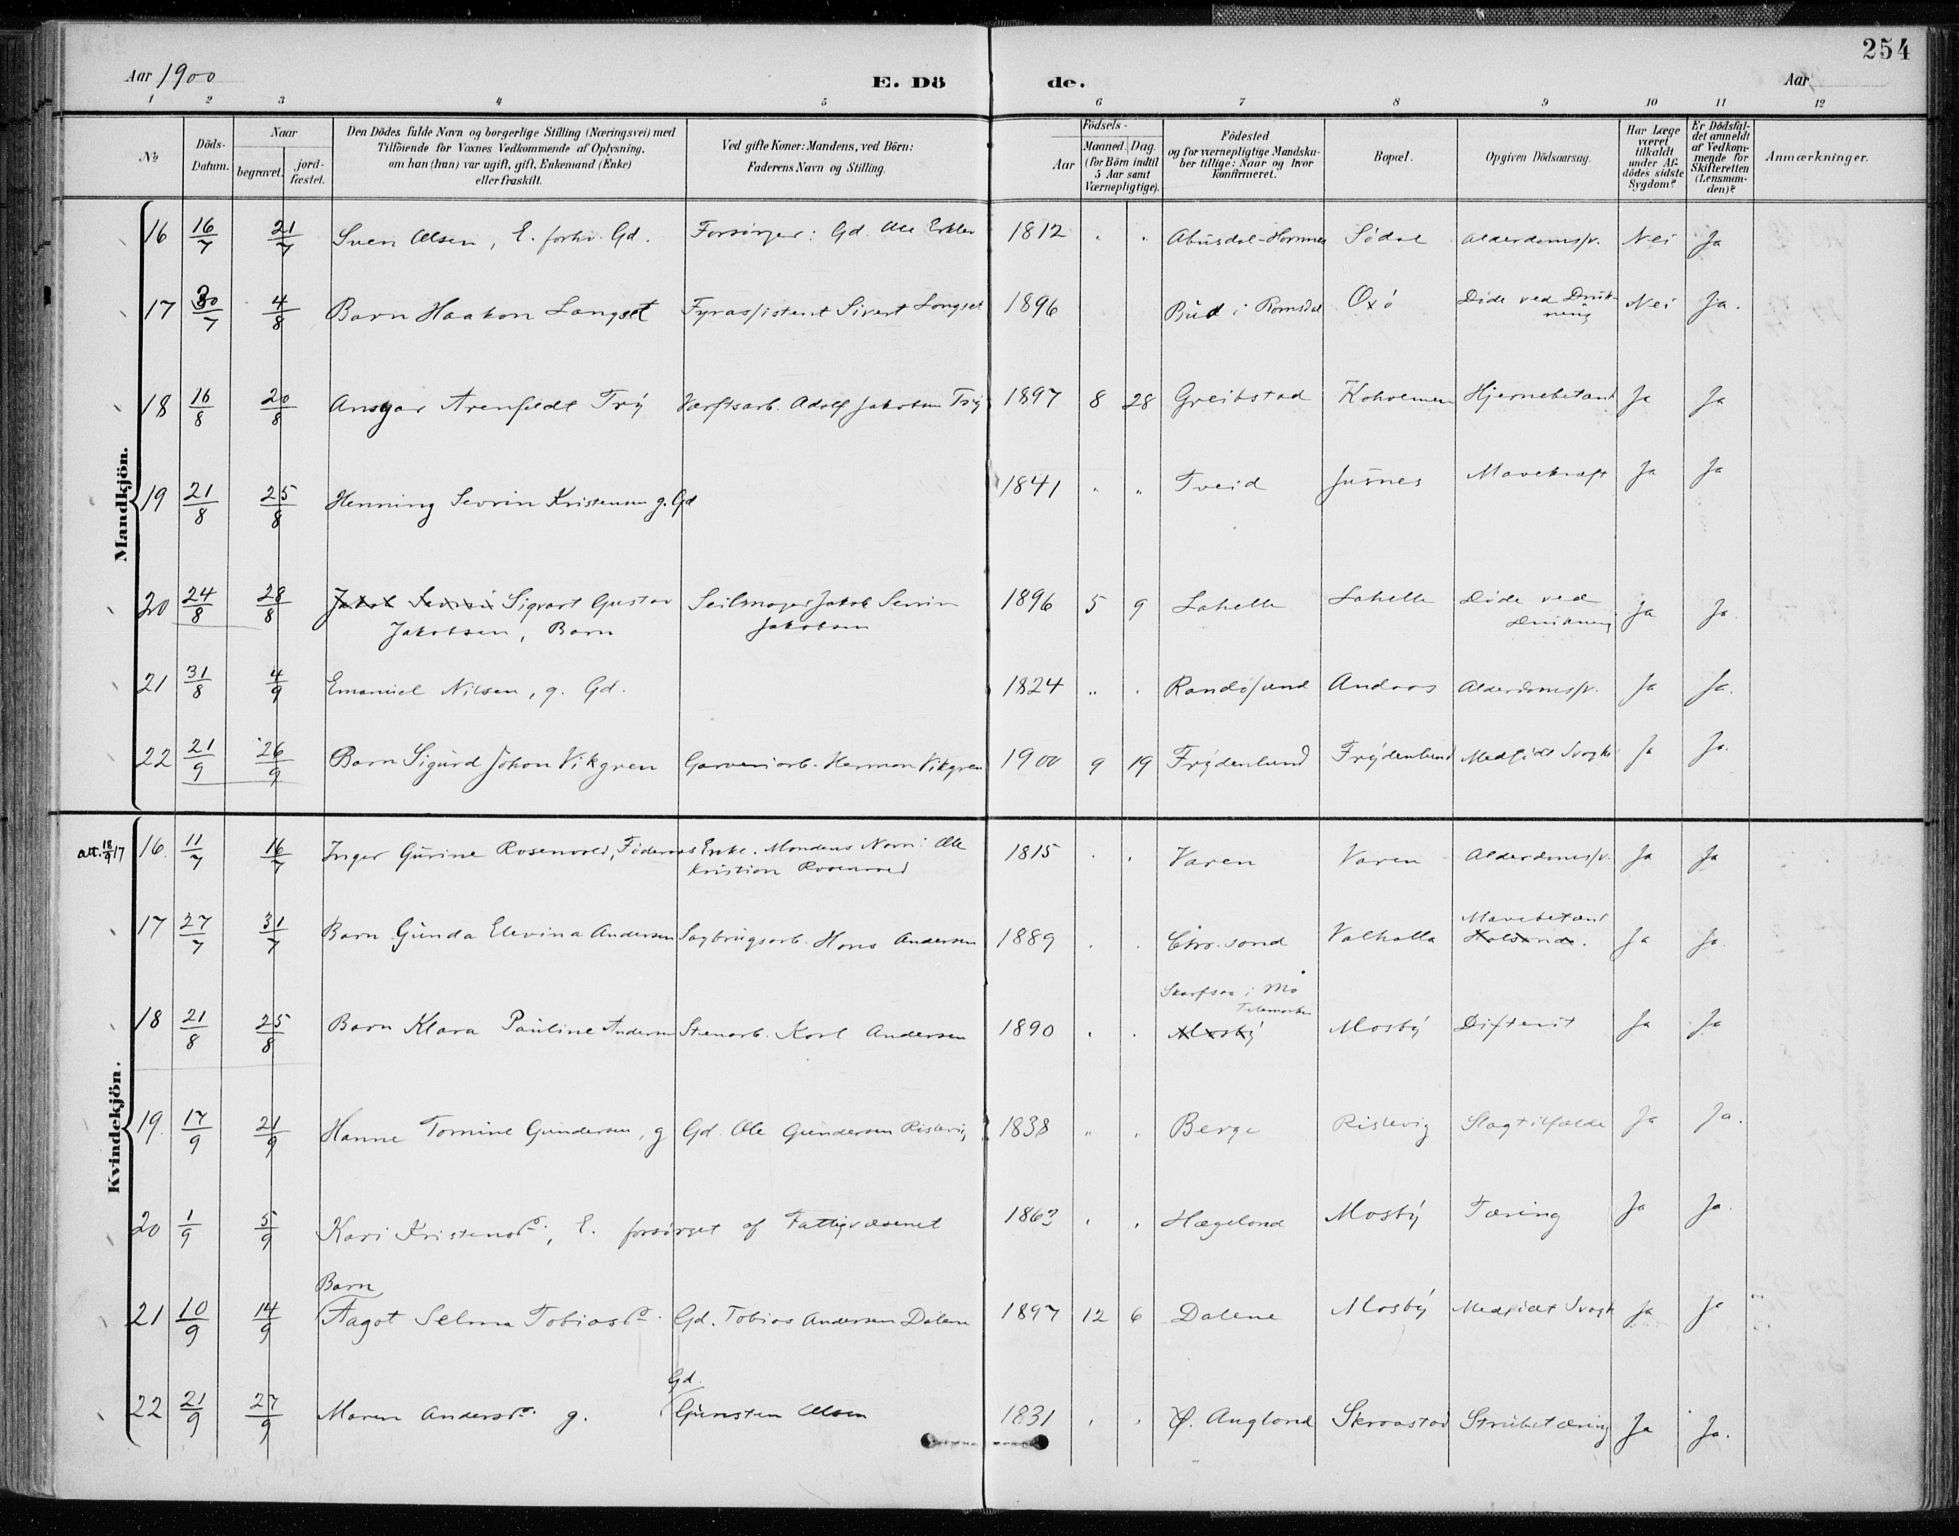 254
Aar 1900 E. Dö de. Aar
1 2 3 4 5 6 7 8 9 10 11 12
№
Döds-Datum.
Naar
begravet.
jord-fæstet.
Den Dödes fulde Navn og borgerlige Stilling (Næringsvei) med
Tilföiende for Voxnes Vedkommende af Oplysning,
om han (hun) var ugift, gift, Enkemand (Enke)
eller fraskilt.
Ved gifte Koner: Mandens, ved Börn:
Faderens Navn og Stilling.
Födsels-
Aar
Maaned. Dag.
(for Börn indtil
5 Aar samt
Værnepligtige).
Födested
og for værnepligtige Mandska-
ber tillige: Naar og hvor
konfirmeret.
Bopæl.
Opgiven Dödsaarsag.
Har Læge
været
tilkaldt
under Af-
dödes sidste
Sygdom?
Er Dödsfal-
det anmeldt
af Vedkom-
mende for
Skifteretten
(Lensman-
den)?
Anmærkninger.
Mandkjön.
16 16/7 21/7 Sven Olsen, E. forhv. Gd. Forsörger: Gd. Ole 1812 " " Abusdal-Hornnes Södal Alderdomssv. Nei Ja
17 30/7 4/8 Barn Haakon Langset Fyrassistent Sivert Langset 1896 Bud i Romsdal Oxö Döde ved Druk-
ning Nei Ja.
18 16/8 20/8 Ansgar Arenfeldt Try Værftsarb. Adolf Jakobsen Try 1897 8 28 Greibstad Koholmen Hjernebetænd Ja Ja
19 21/8 25/8 Henning Sevrin Kristensen g. Gd 1841 " " Tveid Justnes Mavekræft Ja Ja
20 24/8 28/8 Jakob Sevrin Sigvart Gustav Seilmager Jakob Sevrin 1896 5 9 Lahelle Lahelle Döde ved Ja Ja.
Jakobsen, Barn Jakobsen Drukning
21 31/8 4/9 Emanuel Nilsen, g. Gd. 1824 " " Randösund Andaas Alderdomssv. Ja Ja.
22 21/9 26/9 Barn Sigurd Johan Vikgren Garveriarb. Herman Vikgren 1900 9 19 Frydenlund Frydenlund Medfödt Svagh Ja Ja.
Kvindekjön.
att. 18/9 17 16. 11/7 16/7 Inger Gurine Rosenvold, Föderaads Enke. Mandens Navn: Ole 1815 " " Varen Varen Alderdomssv. Ja Ja
Kristian Rosenvold
17 27/7 31/7 Barn Gunda Elevina Andersen Sagbrugsarb. Hans Andersen 1889 " " Chr. sand Valhalla Mavebetænd Ja Ja.
18 21/8 25/8 Barn Klara Pauline Andersen Stenarb. Karl Andersen 1890 " " Skafsaa i Mo
Telemarken
Mosby Mosby Difterit Ja Ja
19. 17/9 21/9 Hanne Tomine Gundersen, g Gd. Ole Gundersen Rislevig 1838 " " Berge Rislevig Slagtilfælde Ja Ja.
20 1/9 5/9 Kari Kristensd., E. forsörget af Fattigvæsenet 1863 " " Hægeland Mosby Tæring Ja Ja.
21 10/9 14/9 Barn
Fagot Selma Tobiasd. Gd. Tobias Andersen Dalene 1897 12 6 Dalene Mosby Medfödt Svagh Ja Ja
22 21/9 27/9 Maren Andersd. g. Gd.
Gunsten Olsen 1831 " " Ö. Augland Skraastad Strubetæring Ja Ja.